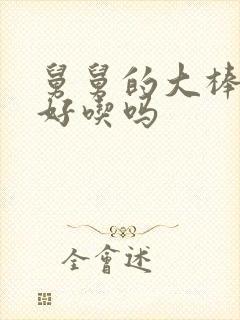 舅舅的大棒
好喫吗
全會述